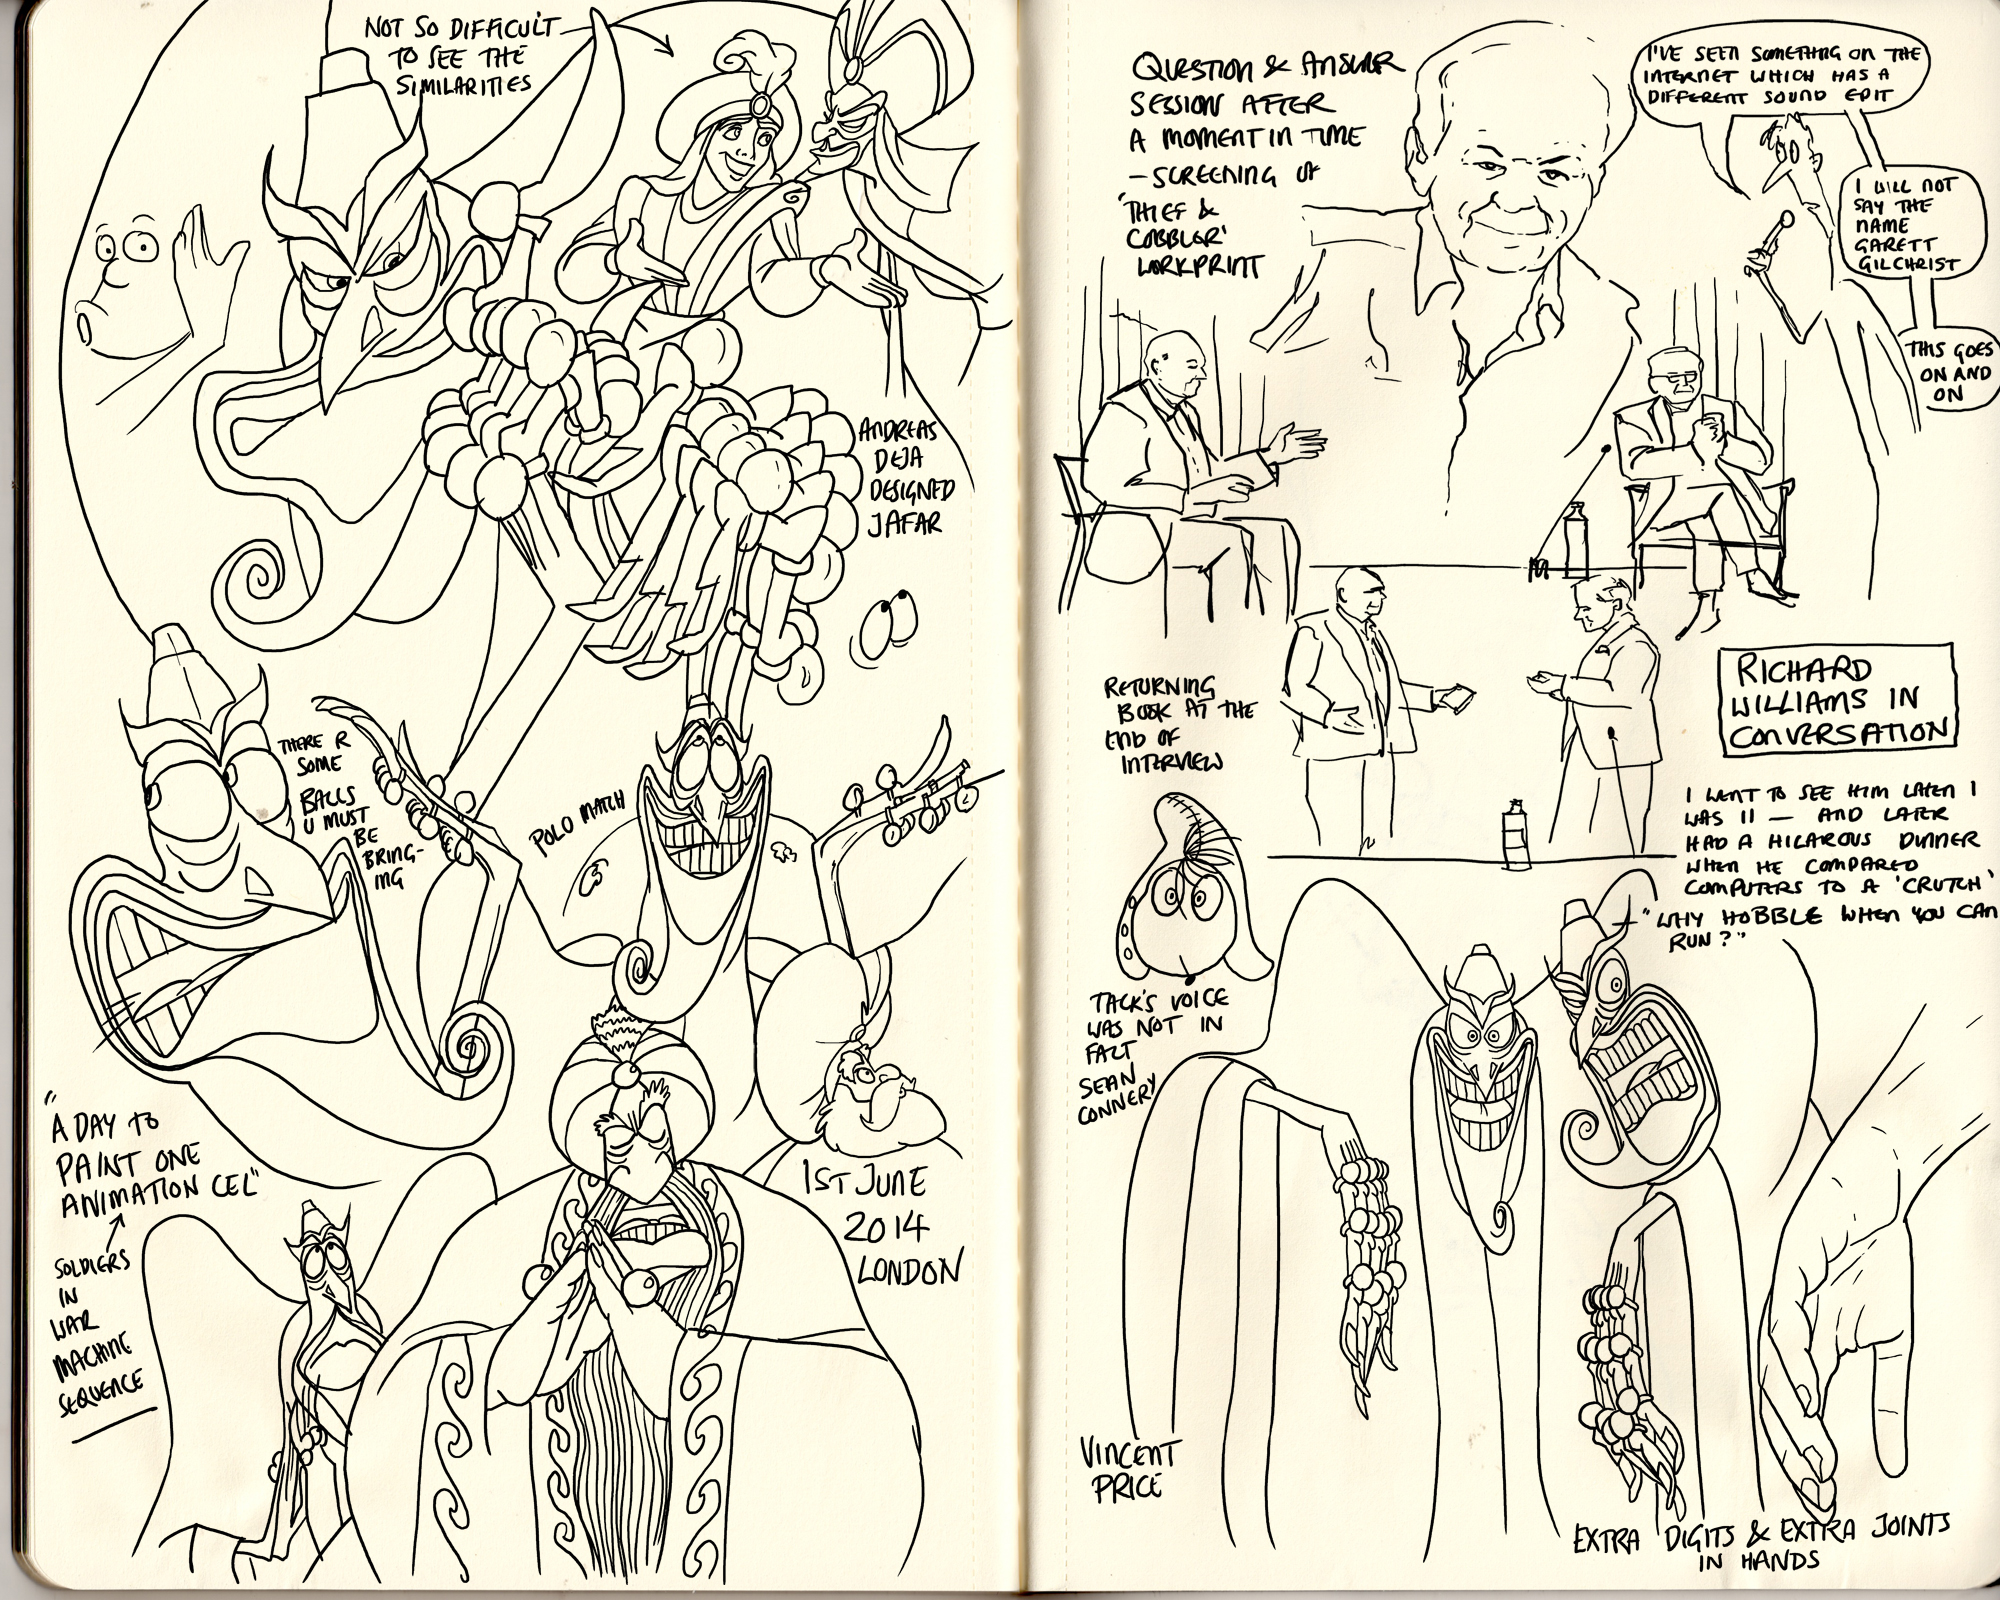 NOT SO DIFFICULT
TO SEE THE
SIMILARITIES
ANDREAS
DEJA
DESIGNED
JAFAR
THERE R
SOME
BALLS
U MUST
BE
BRING-
ING
POLO MATCH
"A DAY TO
PAINT ONE
ANIMATION CEL"
SOLDIERS
IN
WAR
MACHINE
SEQUENCE
1ST JUNE
2014
LONDON
QUESTION & ANSWER
SESSION AFTER
A MOMENT IN TIME
- SCREENING OF
'THIEF &
COBBLER'
WORKPRINT
I'VE SEEN SOMETHING ON THE
INTERNET WHICH HAS A
DIFFERENT SOUND EDIT
I WILL NOT
SAY THE
NAME
GARETT
GILCHRIST
THIS GOES
ON AND
ON
RETURNING
BOOK AT THE
END OF
INTERVIEW
RICHARD
WILLIAMS IN
CONVERSATION
I WENT TO SEE HIM WHEN I
WAS 11 — AND LATER
HAD A HILAROUS DINNER
WHEN HE COMPARED
COMPUTERS TO A 'CRUTCH'
- "WHY HOBBLE WHEN YOU CAN
RUN?"
TACK'S VOICE
WAS NOT IN
FACT
SEAN
CONNERY
VINCENT
PRICE
EXTRA DIGITS & EXTRA JOINTS
IN HANDS